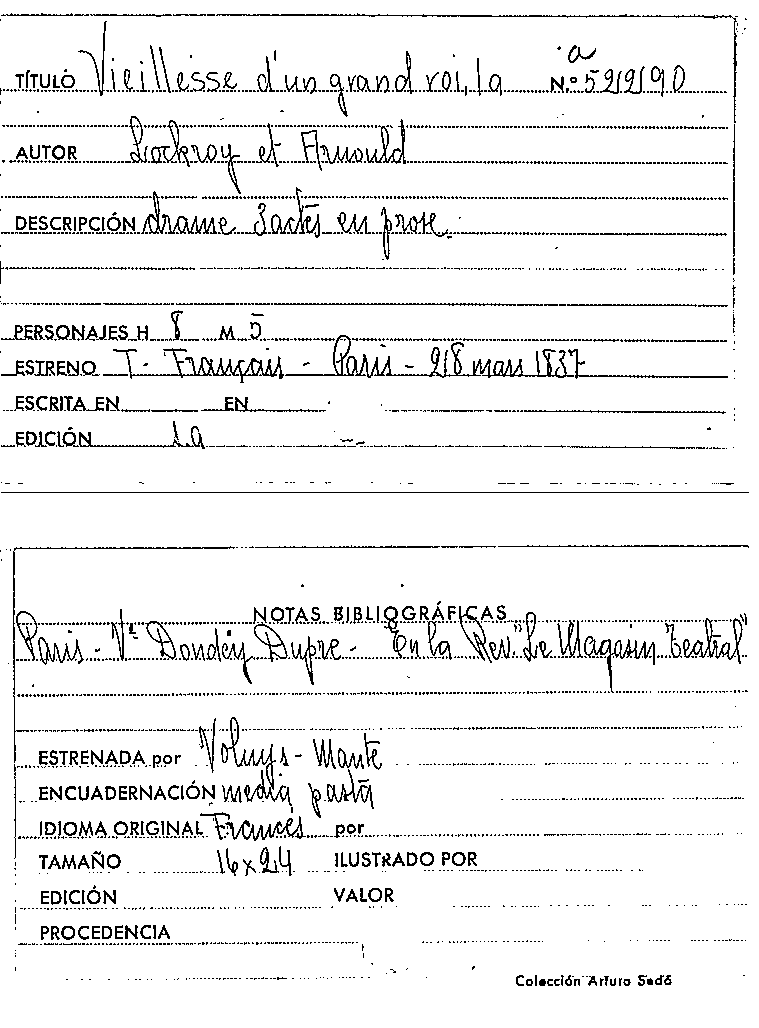 a
TÍTULO Vieillesse d'un grand roi, la N.º 52990
AUTOR Lockroy et Arnould
DESCRIPCIÓN drame 3 actes en prose.
PERSONAJES H 8 M 5
ESTRENO T. Français - Paris - 28 mars 1837
ESCRITA EN EN
EDICIÓN 1.a
NOTAS BIBLIOGRÁFICAS
Paris - Vª Dondey Dupre - En la Rev. "Le Magasin Teatral"
ESTRENADA por Volnys - Mante
ENCUADERNACIÓN media pasta
IDIOMA ORIGINAL Francés por
TAMAÑO 16 x 24 ILUSTRADO POR
EDICIÓN VALOR
PROCEDENCIA
Colección Arturo Sedó